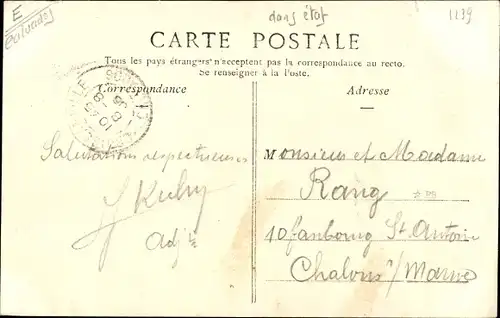 E
Calvados
dans état
1139
CARTE POSTALE
Tous les pays étrangers n'acceptent pas la correspondance au recto.
Se renseigner à la Poste.
Correspondance
Adresse
Salutations respectueuses
Adjt
Monsieur et Madame
Rang
10 faubourg St. Antoine
Chalons s/ Marne